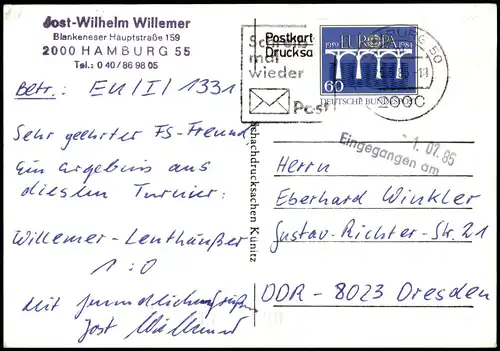 Jost-Wilhelm Willemer
Blankeneser Hauptstraße 159
2000 HAMBURG 55
Tel.: 0 40/86 98 05
Betr.: EU/I/1331
Sehr geehrter FS-Freund,
Ein Ergebnis aus
diesem Turnier:
Willemer - Lenthäußer
1:0
Mit freundlichen Grüßen
Jost Willemer
Schachdrucksachen Künitz
Postkart
Drucksa
Schreib
mal
wieder
Post
1959 EUROPA 1984
60
DEUTSCHE BUNDESPOST
BURG 50
2000
- 1. 02. 85
Eingegangen am
Herrn
Eberhard Winkler
Gustav-Richter-Str. 21
DDR - 8023 Dresden